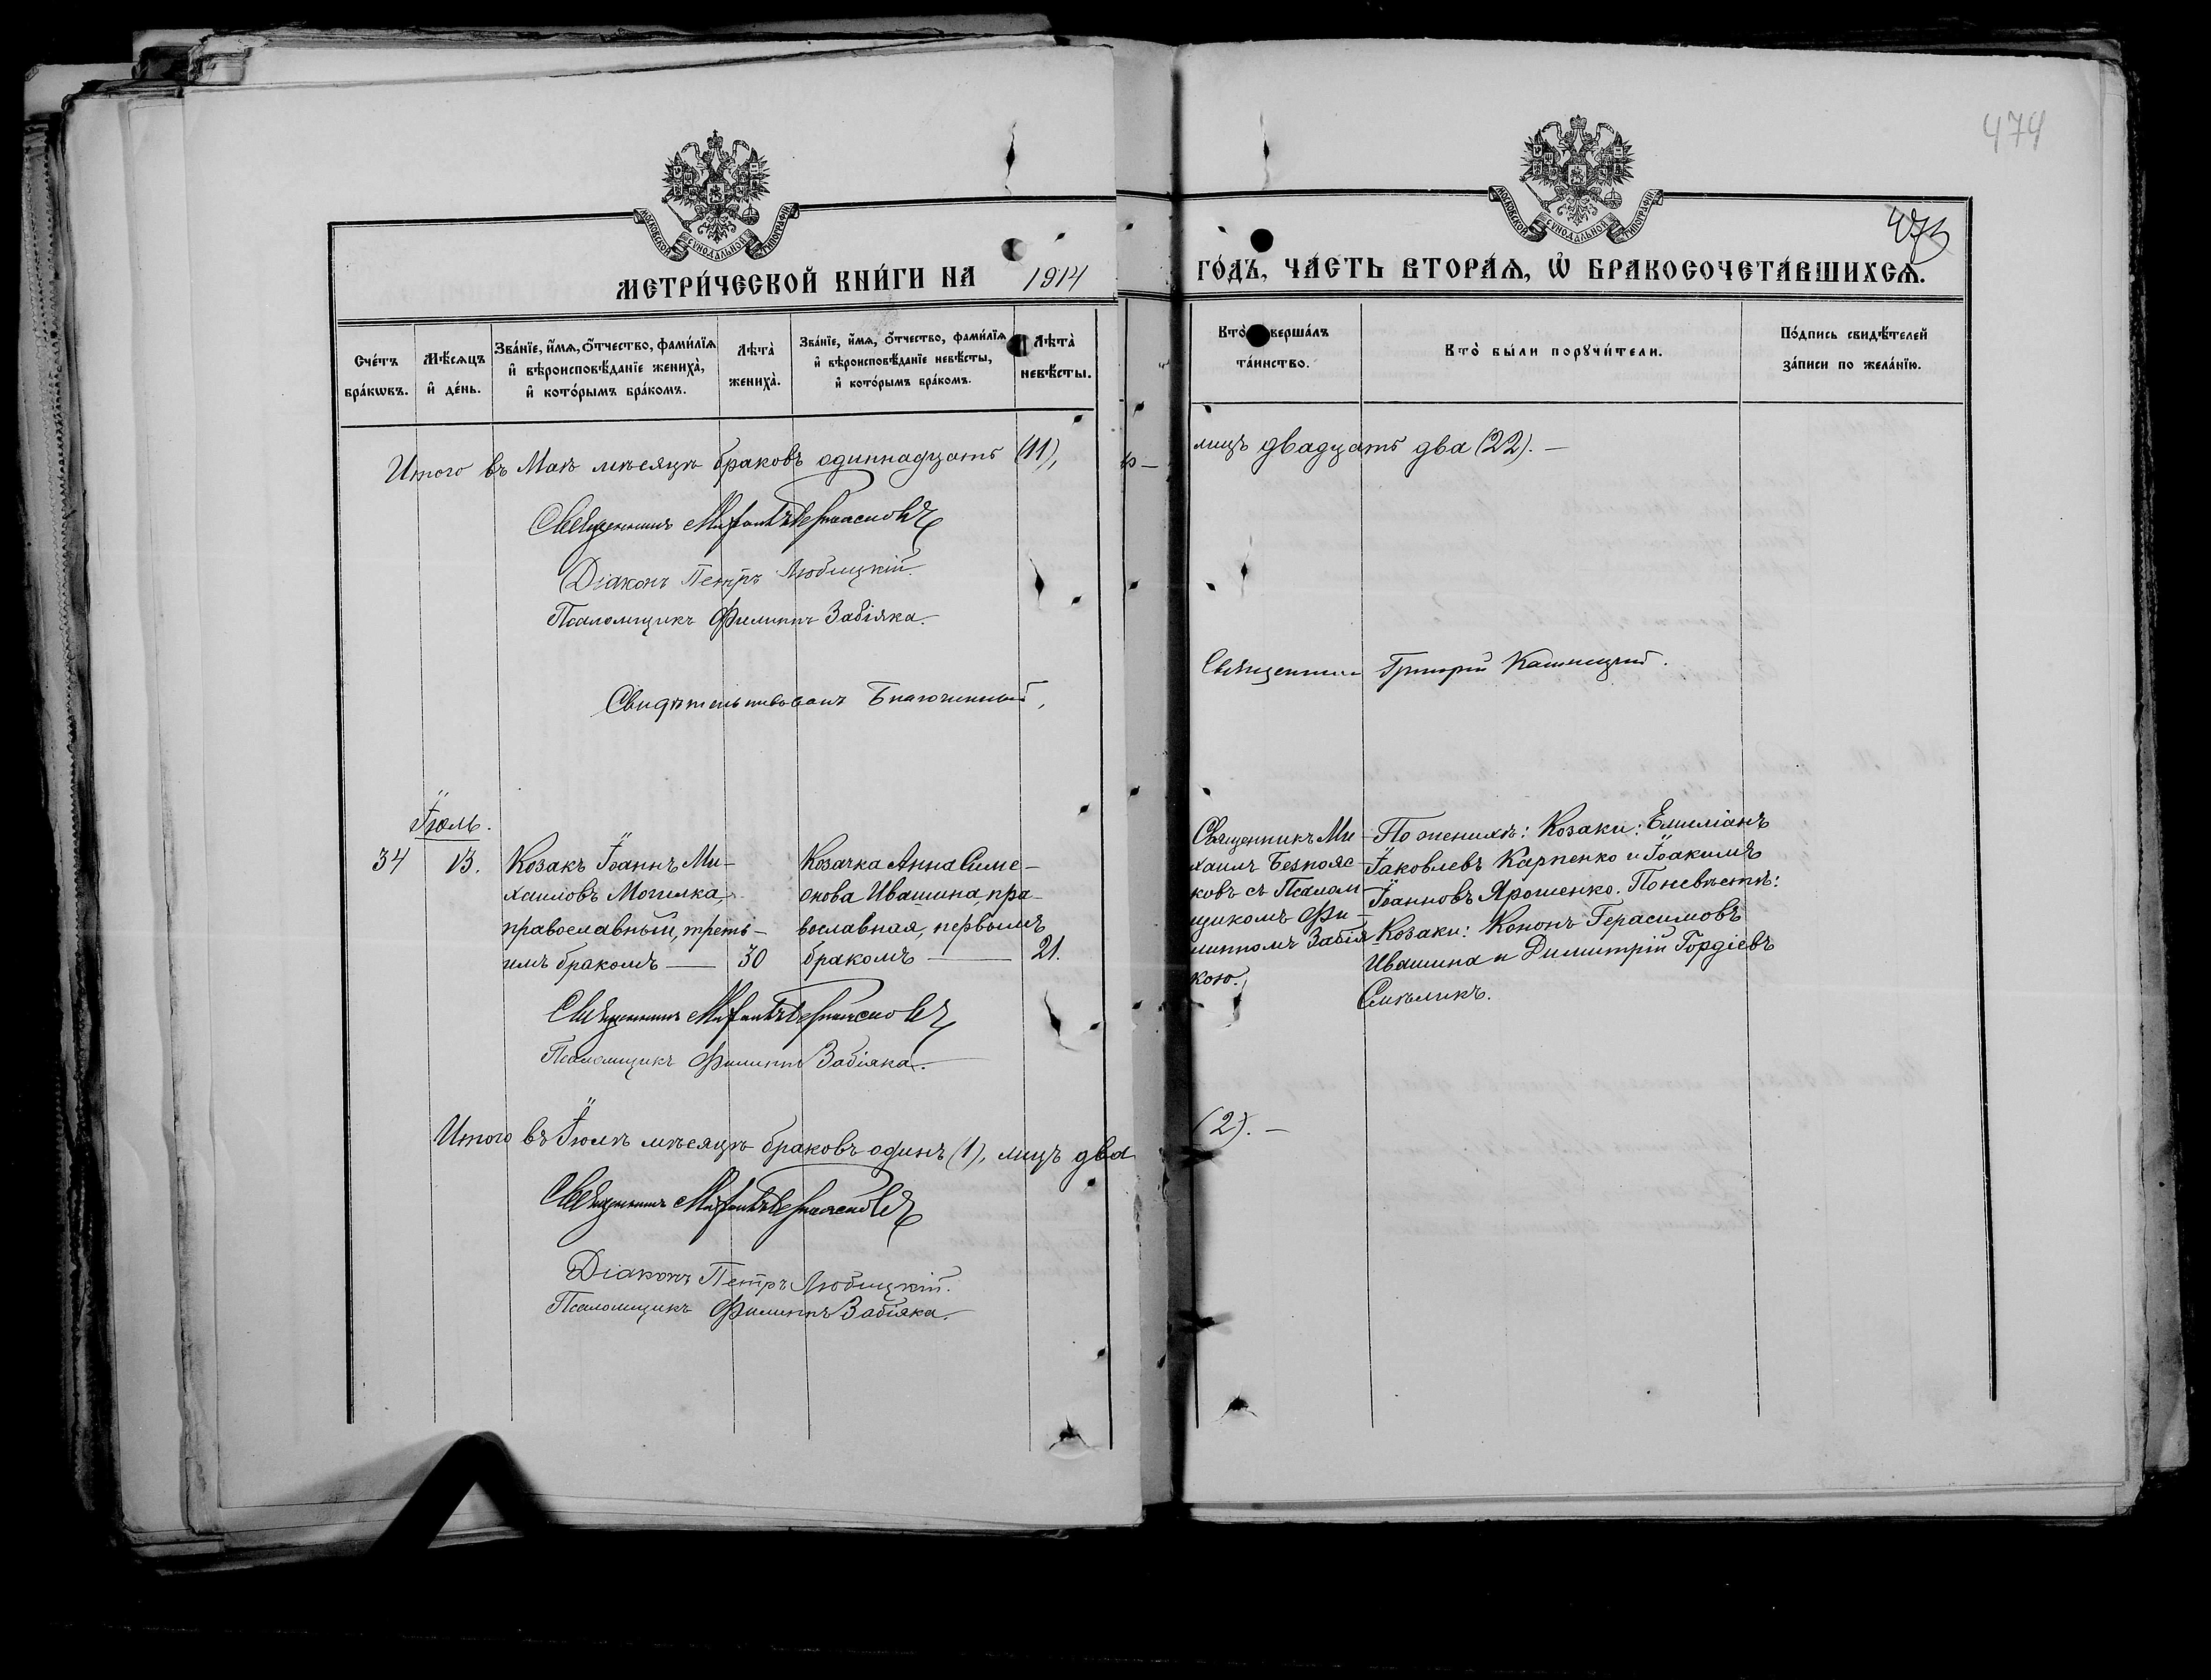 474
МОСКОВСКОЙ СѴНОДАЛЬНОЙ ТИПОГРАФІИ
МОСКОВСКОЙ СѴНОДАЛЬНОЙ ТИПОГРАФІИ
МЕТРИ́ЧЕСКОЙ КНИ́ГИ НА 1914
ГО́ДЪ, ЧА́СТЬ ВТОРА́Ѧ, Ѽ БРАКОСОЧЕТА́ВШИХСѦ.
Сче́тъ бра́кѡвъ.
Мѣ́сѧцъ и҆ де́нь.
Зва́нїе, и҆́мѧ, ѻ҆́тчество, фами́лїѧ
и҆ вѣроисповѣ́данїе жениха̀,
и҆ кото́рымъ бра́комъ.
Лѣта̀ жениха̀.
Зва́нїе, и҆́мѧ, ѻ҆́тчество, фами́лїѧ
и҆ вѣроисповѣ́данїе невѣ́сты,
и҆ кото́рымъ бра́комъ.
Лѣта̀ невѣ́сты.
Кто̀ вершáлъ
та́инство.
Кто̀ бы́ли порꙋчи́тели.
По́дпись свидѣ́телей
за́писи по жела́нїю.
Итого въ Маѣ мѣсяцѣ браковъ одиннадцать (11),
лицъ двадцать два (22). —
Священникъ
Діаконъ Петръ Любицкій.
Псаломщикъ Филиппъ Забіяка.
Свидѣтельствовалъ Благочинный,
Священникъ Григорій
Іюль.
34
13.
Козакъ Іоаннъ Ми-
хаиловъ Могилка,
православный, треть-
имъ бракомъ — 30
Козачка Анна Симе-
онова Ивашина, пра-
вославная, первымъ
бракомъ — 21.
Священникъ Ми-
хаилъ Безпояс-
ковъ съ Псалом-
щикомъ Фи-
липпомъ Забія
кою.
По женихѣ: Козаки: Емиліанъ
Іаковлевъ Карпенко и Іоакимъ
Іоанновъ Ярошенко. По невѣстѣ:
Козаки: Кононъ Герасимовъ
Ивашина и Димитрій Гордіевъ
Смѣликъ.
Священникъ
Псаломщикъ Филиппъ Забіяка.
Итого въ Іюлѣ мѣсяцѣ браковъ одинъ (1), лицъ два
(2). —
Священникъ
Діаконъ Петръ Любицкій.
Псаломщикъ Филиппъ Забіяка.